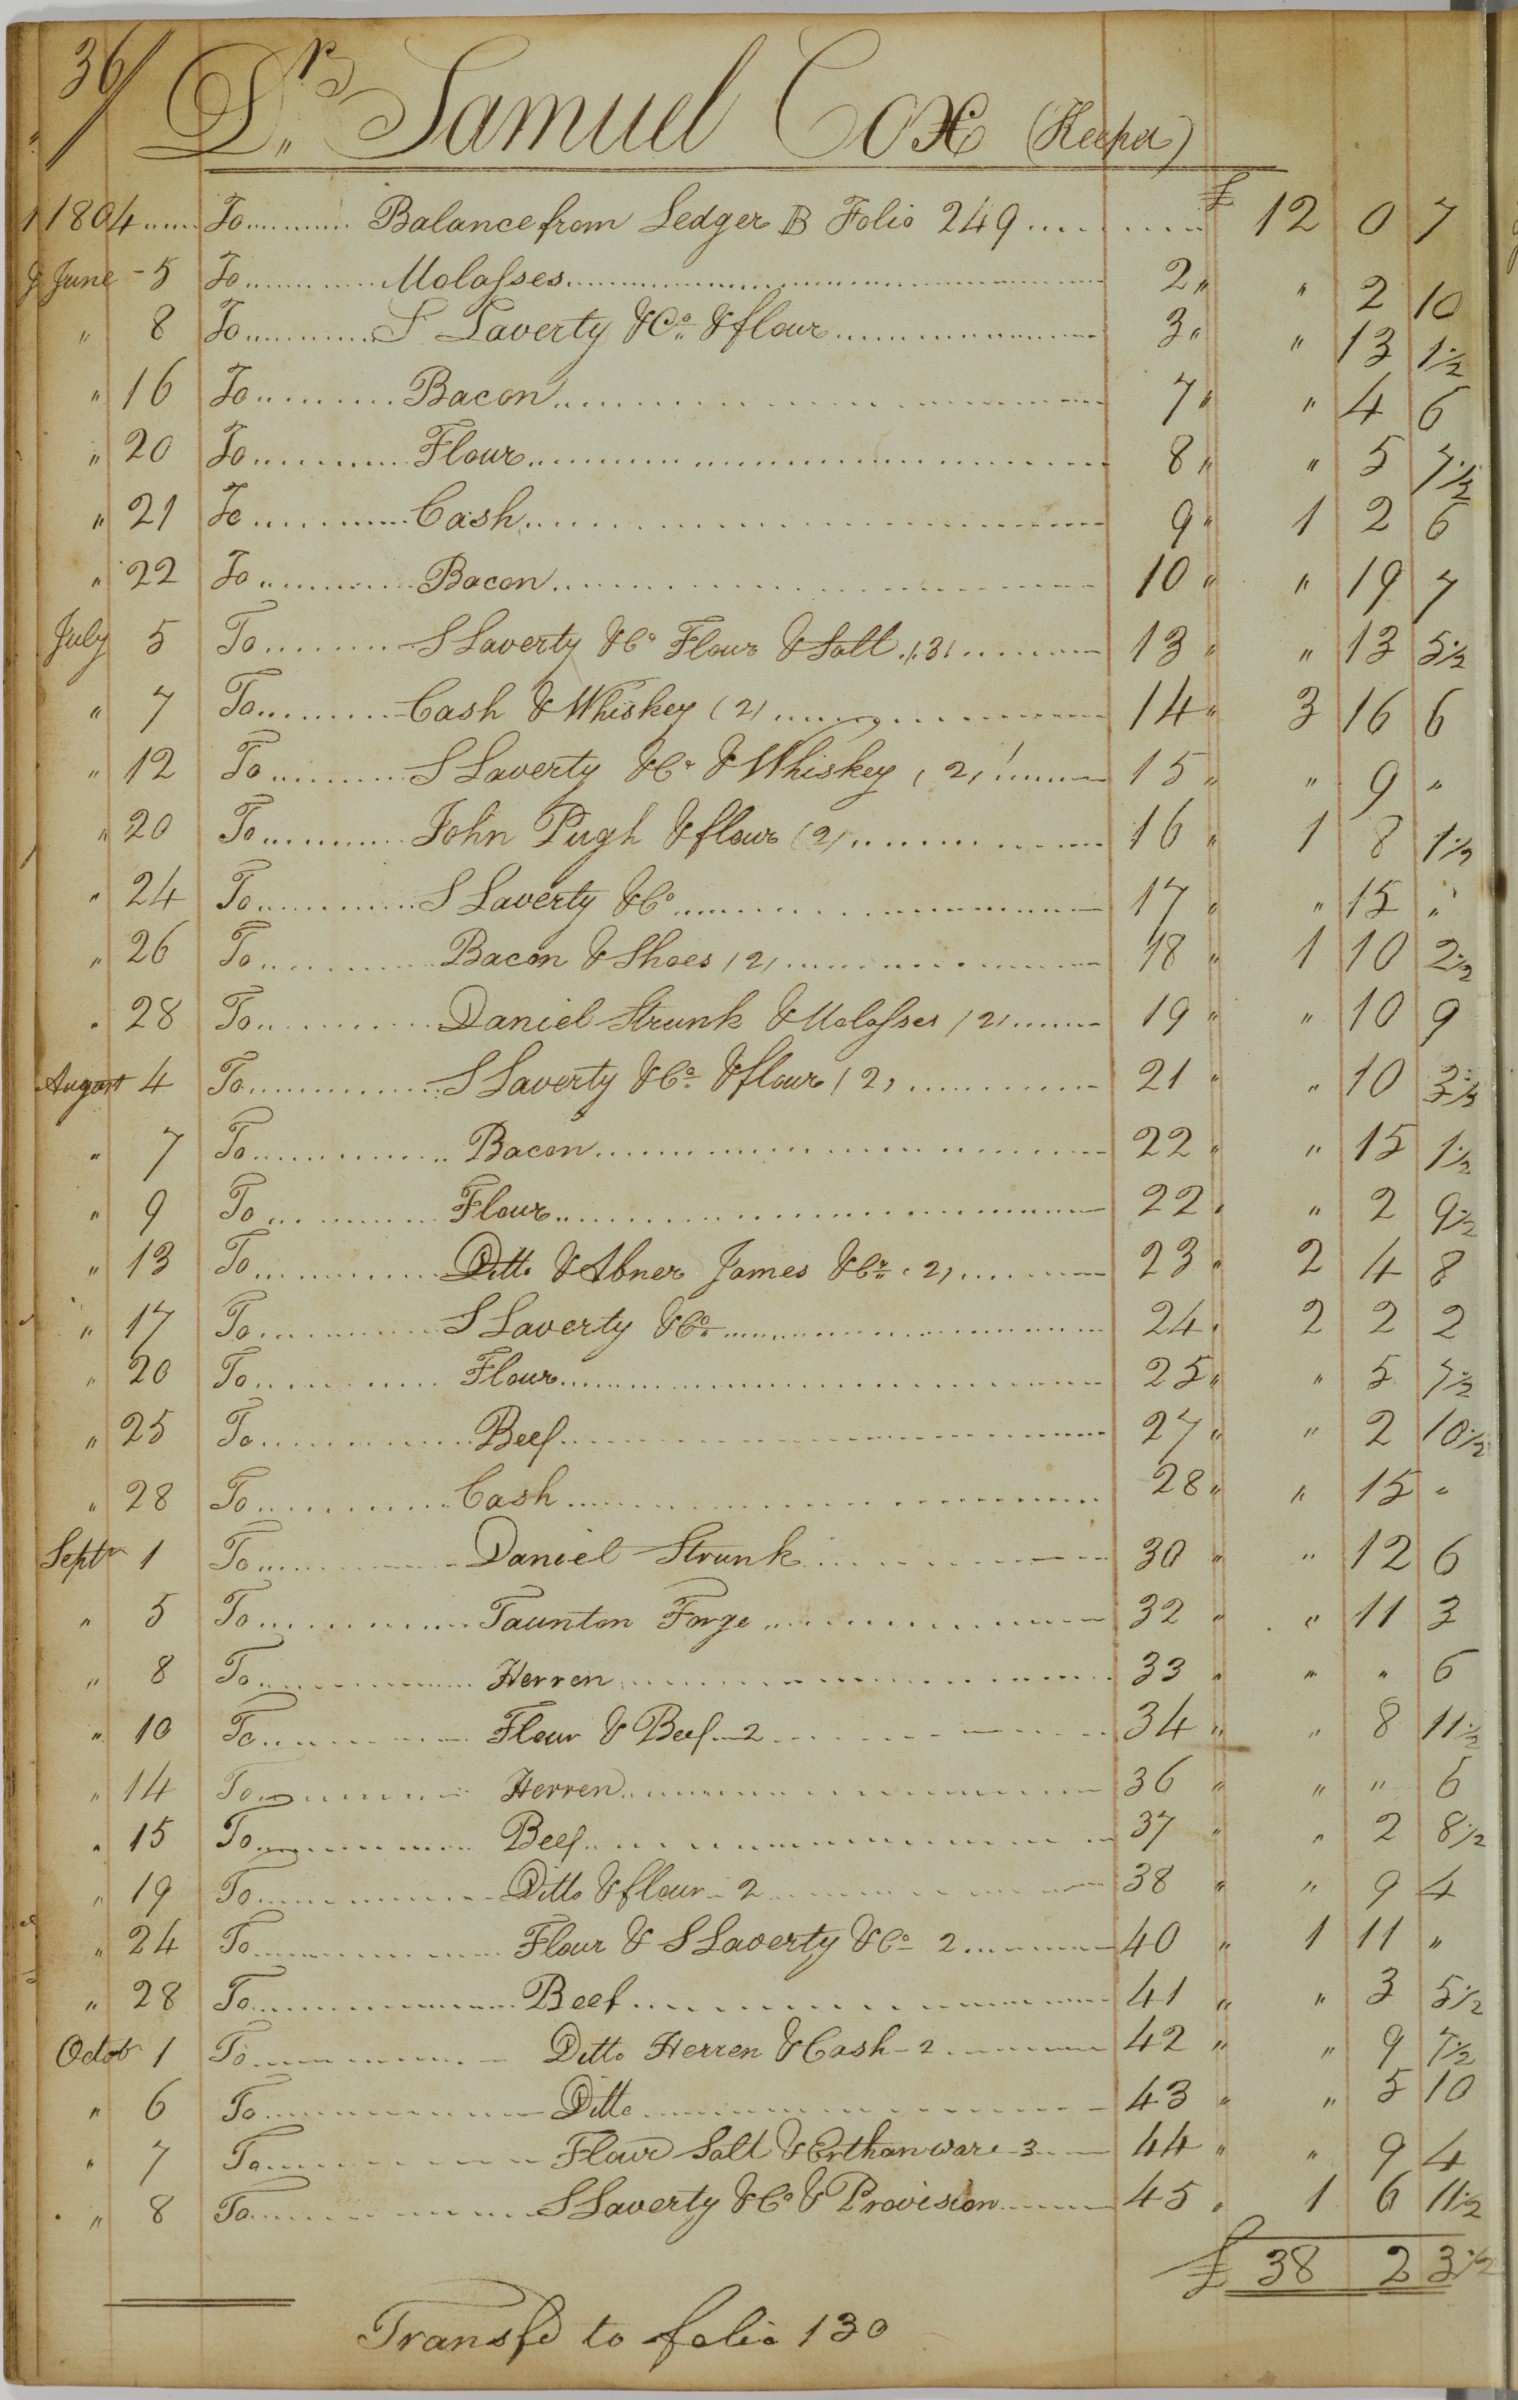 36/
Dr. Samuel Cox (Keeper)
1804 To Balance from Ledger B Folio 249 £ 12 0 7
June - 5 To Molasses 2 " " 2 10
" 8 To S Laverty & Co. & flour 3 " " 13 1 1/2
" 16 To Bacon 7 " " 4 6
" 20 To Flour 8 " " 5 7 1/2
" 21 To Cash 9 " 1 2 6
" 22 To Bacon 10 " " 19 7
July 5 To S Laverty & Co Flour & Salt (3) 13 " " 13 5 1/2
" 7 To Cash & Whiskey (2) 14 " 3 16 6
" 12 To S Laverty & Co & Whiskey (2) 15 " " 9 "
" 20 To John Pugh & flour (2) 16 " 1 8 1 1/2
" 24 To S Laverty & Co 17 " " 15 "
" 26 To Bacon & Shoes (2) 18 " 1 10 2 1/2
" 28 To Daniel Strunk & Molasses (2) 19 " " 10 9
August 4 To S Laverty & Co. & flour (2) 21 " " 10
" 7 To Bacon 22 " " 15 1 1/2
" 9 To Flour 22 " " 2 9 1/2
" 13 To Ditto & Abner James & Co. (2) 23 " 2 4 8
" 17 To S Laverty & Co. 24 " 2 2 2
" 20 To Flour 25 " " 5 7 1/2
" 25 To Beef 27 " " 2 10 1/2
" 28 To Cash 28 " " 15 "
Septr 1 To Daniel Strunk 30 " " 12 6
" 5 To Taunton Forge 32 " " 11 3
" 8 To Herren 33 " " " 6
" 10 To Flour & Beef - 2 34 " " 8 11 1/2
" 14 To Herren 36 " " " 6
" 15 To Beef 37 " " 2 8 1/2
" 19 To Ditto & flour - 2 38 " " 9 4
" 24 To Flour & S Laverty & Co - 2 40 " 1 11 "
" 28 To Beef 41 " " 3 5 1/2
Octobr 1 To Ditto Herren & Cash - 2 42 " " 9 7 1/2
" 6 To Ditto 43 " " 5 10
" 7 To Flour Salt & Erthanware - 3 44 " " 9 4
" 8 To S Laverty & Co & Provision 45 " 1 6 11 1/2
£ 38 2 3 1/2
Transfd to folio 130